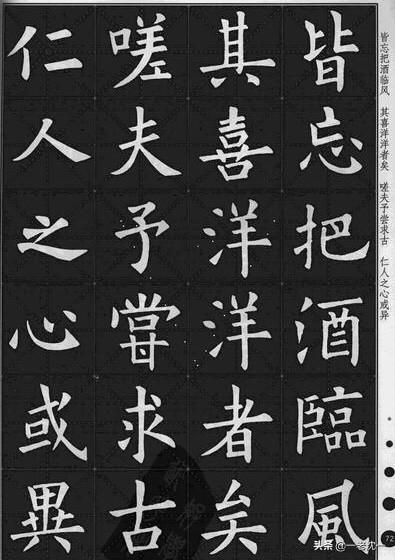 皆忘把酒臨風
其喜洋洋者矣
嗟夫予甞求古
仁人之心或異
皆忘把酒临风 其喜洋洋者矣 嗟夫予尝求古 仁人之心或异
72
头条 @一老沈一